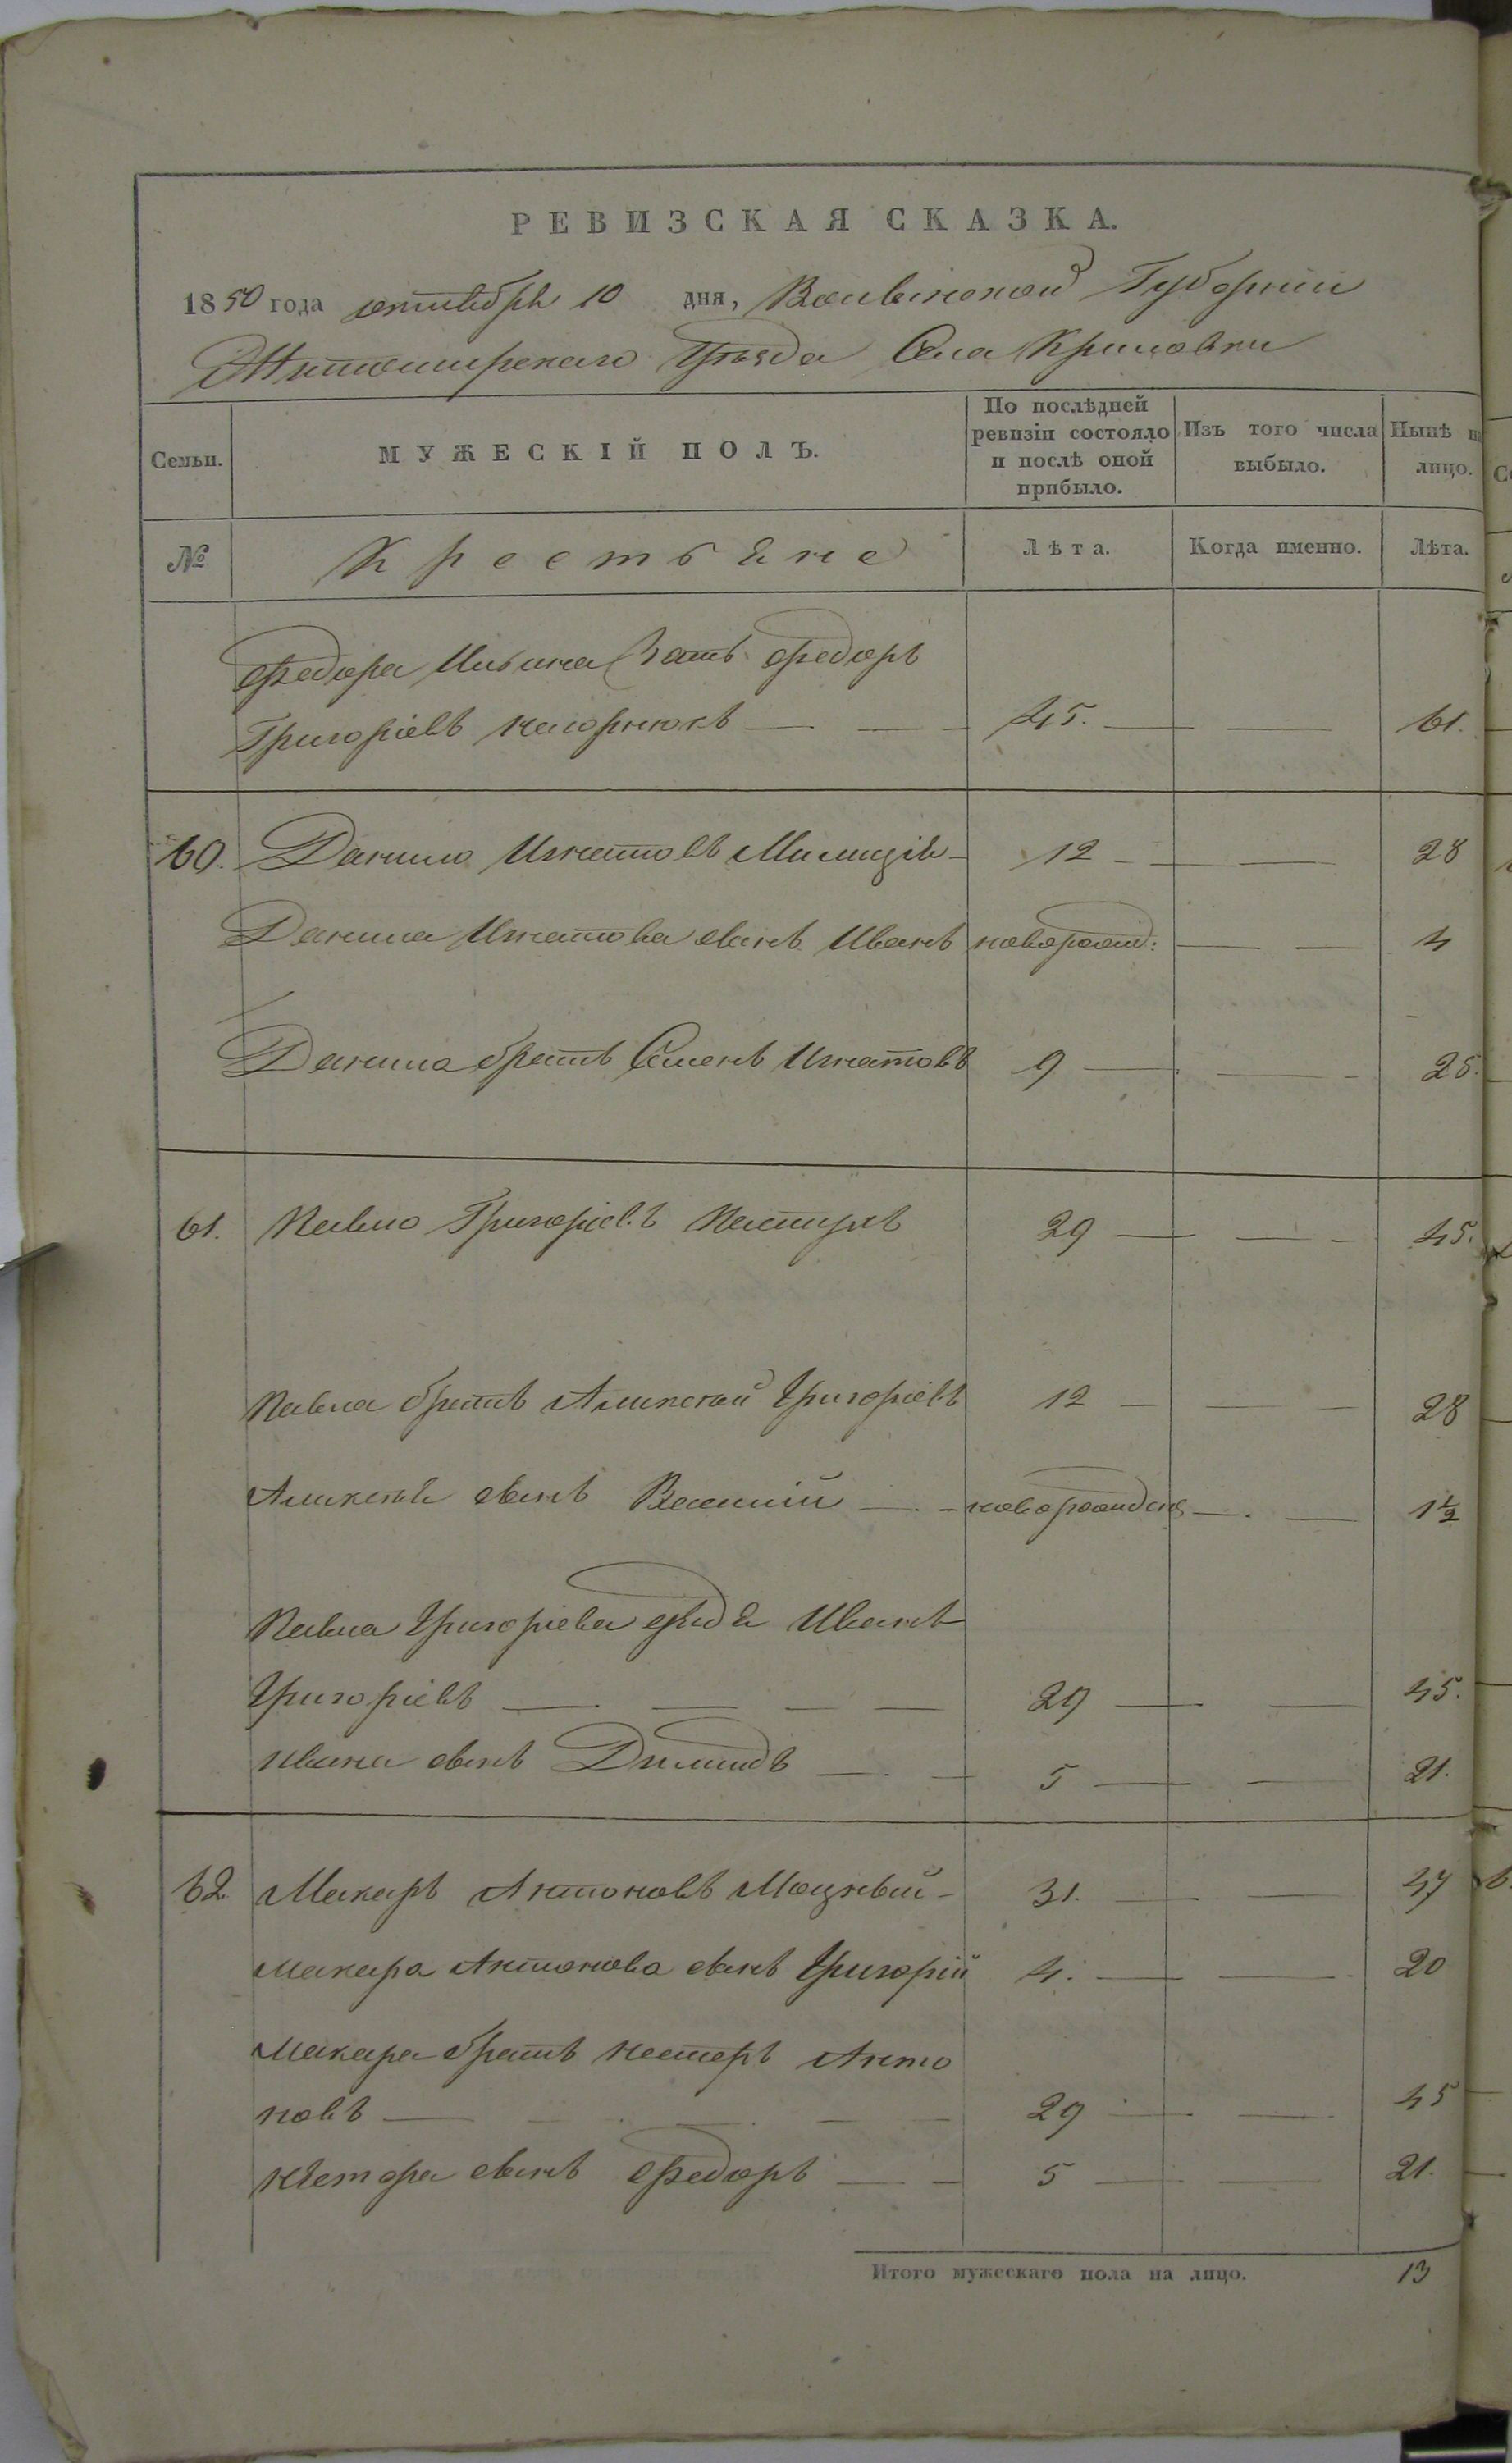 РЕВИЗСКАЯ СКАЗКА.
1850 года октября 10 дня, Волынской Губерніи
Житомирскаго Уѣзда Села Криловки
Семьи. МУЖЕСКІЙ ПОЛЪ. По послѣдней ревизіи состояло и послѣ оной прибыло. Изъ того числа выбыло. Нынѣ на лицо.
№ Крестьяне Лѣта. Когда именно. Лѣта.
Федора Ильина Зять Федоръ
Григоріевъ Нагорнюкъ 45. 61.
60. Данило Игнатовъ 12 28
Данила Игнатова сынъ Иванъ новорожд: 4
Данила братъ Семенъ Игнатовъ 9 25.
61. Павло Григоріевъ Пастухъ 29 45.
Павла братъ Аликсѣй Григоріевъ 12 28
Аликсѣя сынъ Василій новорожденъ 1½
Павла Григоріева дядя Иванъ
Григоріевъ 29 45.
Ивана сынъ Демидъ 5 21.
62. Макаръ Антоновъ 31. 47
Макара Антонова сынъ Григорій 4. 20
Макара братъ Нестеръ Анто
новъ 29 45
Нестера сынъ Федоръ 5 21.
Итого мужескаго пола на лицо. 13